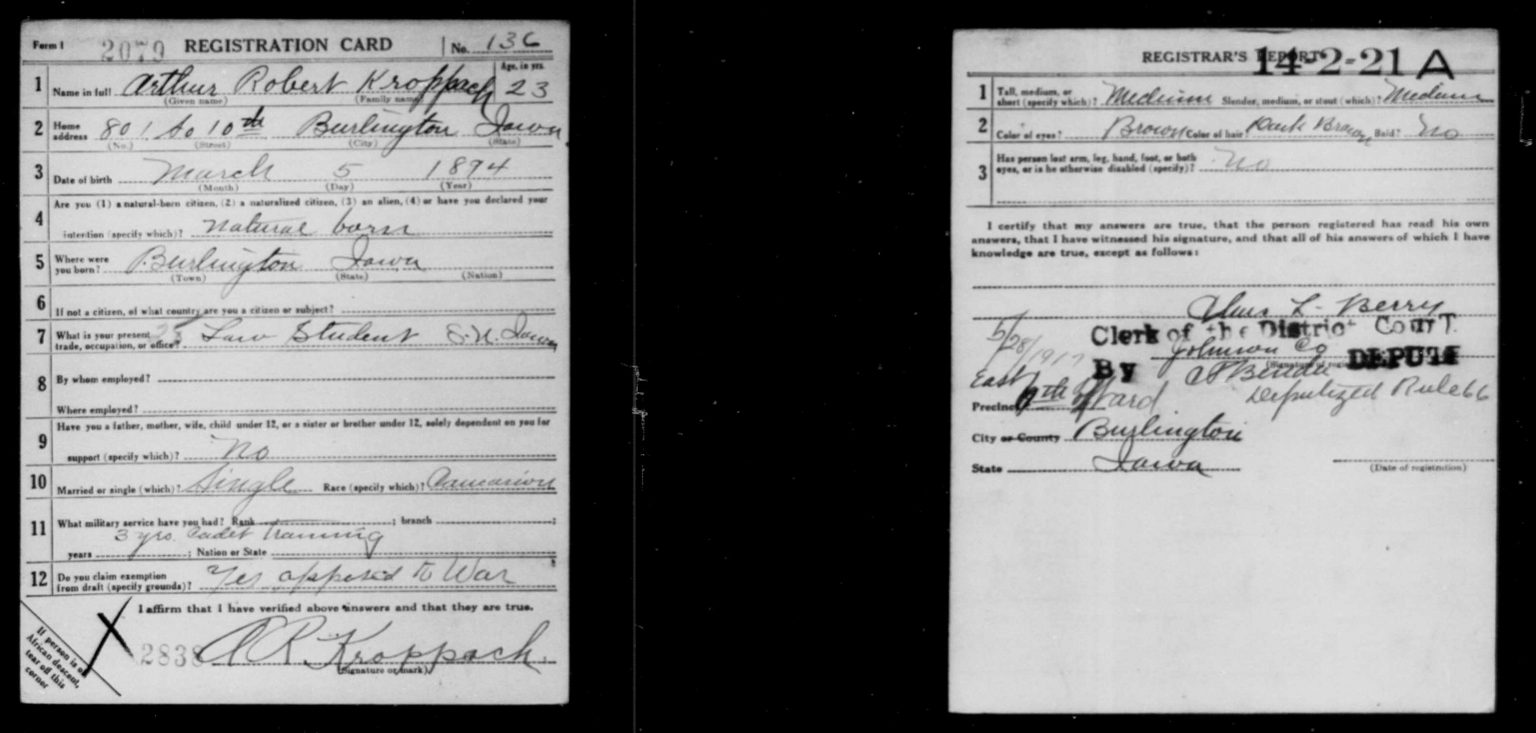 Form 1 2079 REGISTRATION CARD No. 136
1 Name in full Arthur Robert Kroppach Age, in yrs. 23
(Given name) (Family name)
2 Home address 801 So 10th Burlington Iowa
(No.) (Street) (City) (State)
3 Date of birth March 5 1894
(Month) (Day) (Year)
4 Are you (1) a natural-born citizen, (2) a naturalized citizen, (3) an alien, (4) or have you declared your
intention (specify which)? natural born
5 Where were you born? Burlington Iowa
(Town) (State) (Nation)
6 If not a citizen, of what country are you a citizen or subject?
7 What is your present trade, occupation, or office? Law Student S.U. Iowa
8 By whom employed?
Where employed?
9 Have you a father, mother, wife, child under 12, or a sister or brother under 12, solely dependent on you for
support (specify which)? No
10 Married or single (which)? Single Race (specify which)? Caucasion
11 What military service have you had? Rank ; branch ;
3 yrs. Cadet Training
years ; Nation or State
12 Do you claim exemption from draft (specify grounds)? Yes opposed to War
I affirm that I have verified above answers and that they are true.
2838 A R Kroppach
(Signature or mark)
If person is of
African descent,
tear off this
corner
REGISTRAR'S REPORT 14-2-21 A
1 Tall, medium, or short (specify which)? Medium Slender, medium, or stout (which)? Medium
2 Color of eyes? Brown Color of hair Dark Brown Bald? No
3 Has person lost arm, leg, hand, foot, or both eyes, or is he otherwise disabled (specify)? No
I certify that my answers are true, that the person registered has read his own
answers, that I have witnessed his signature, and that all of his answers of which I have
knowledge are true, except as follows:
L. Berry
Clerk of the District Court.
5/28/1917 Johnson Co
By DEPUTY
(Signature of registrar)
East Deputized Rule 66
Precinct Ward
City or County Burlington
State Iowa
(Date of registration)